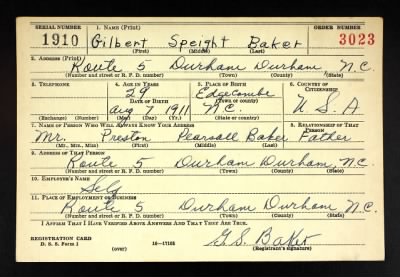 SERIAL NUMBER 1. NAME (Print) ORDER NUMBER
1910 Gilbert Speight Baker 3023
(First) (Middle) (Last)
2. ADDRESS (Print)
Route 5 Durham Durham N.C.
(Number and street or R. F. D. number) (Town) (County) (State)
3. TELEPHONE 4. AGE IN YEARS 5. PLACE OF BIRTH 6. COUNTRY OF CITIZENSHIP
29 Edgecombe
DATE OF BIRTH (Town or county)
Aug 7 1911 N.C. U.S.A
(Exchange) (Number) (Mo.) (Day) (Yr.) (State or country)
7. NAME OF PERSON WHO WILL ALWAYS KNOW YOUR ADDRESS 8. RELATIONSHIP OF THAT PERSON
Mr. Preston Pearsall Baker Father
(Mr., Mrs., Miss) (First) (Middle) (Last)
9. ADDRESS OF THAT PERSON
Route 5 Durham Durham, N.C.
(Number and street or R. F. D. number) (Town) (County) (State)
10. EMPLOYER'S NAME
Self
11. PLACE OF EMPLOYMENT OR BUSINESS
Route 5 Durham Durham N.C.
(Number and street or R. F. D. number) (Town) (County) (State)
I AFFIRM THAT I HAVE VERIFIED ABOVE ANSWERS AND THAT THEY ARE TRUE.
REGISTRATION CARD G.S. Baker
D. S. S. Form 1 (over) 16—17105 (Registrant's signature)